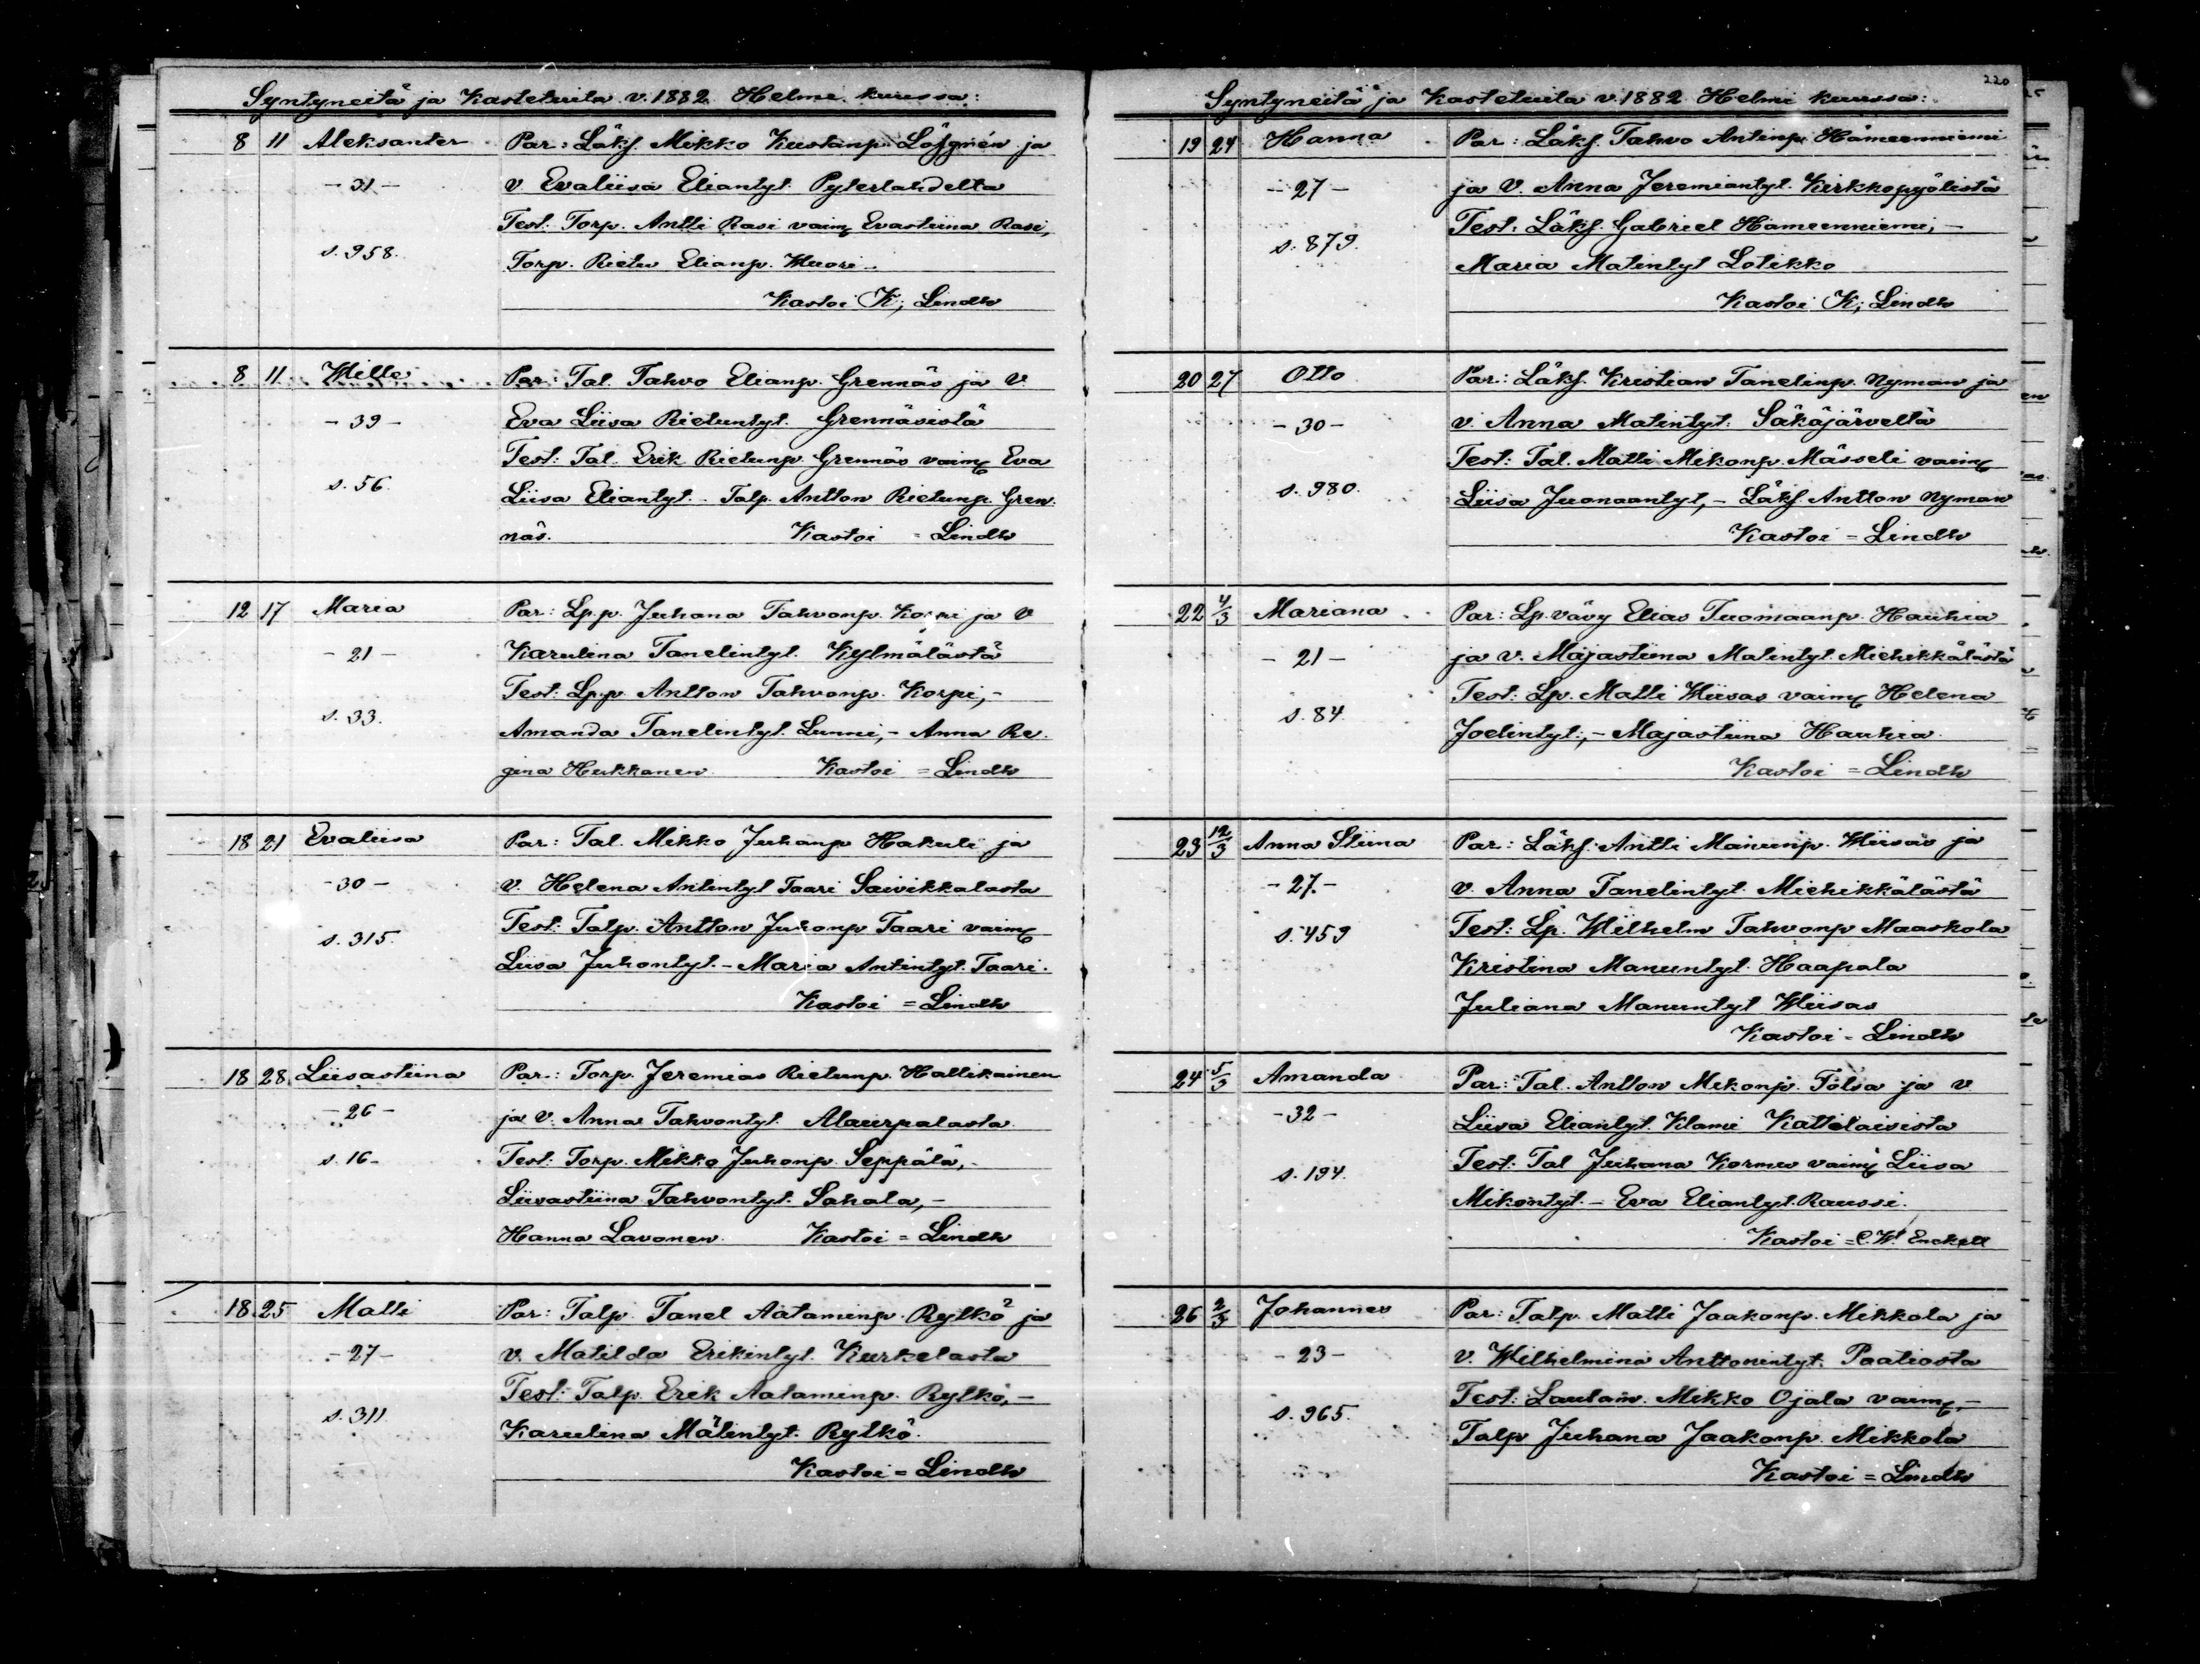 Syntyneitä ja Kastetuita v. 1882 Helmi kuussa:
8 11 Aleksanter Par: Läks. Mikko Kustanp. Löfgrén ja
- 31 - v. Evaliisa Eliantyt. Pyterlahdelta
Test: Torp. Antti Rasi vaim. Evastiina Rasi,
s. 958. Torp. Rietu Elianp. Wuori
Kastoi K; Lindh
8 11 Wille Par: Tal. Tahvo Elianp. Grennäs ja v.
- 39 - Eva Liisa Rietuntyt. Grennäsistä
Test: Tal. Erik Rietunp. Grennäs vaim. Eva
s. 56. Liisa Eliantyt. - Talp. Antton Rietunp. Gren
näs. Kastoi = Lindh
12 17 Maria Par: Lp.p. Juhana Tahvonp. Korpi ja v
- 21 - Karulina Tanelintyt. Kylmälästä
Test: Lp.p. Antton Tahvonp. Korpi, -
s. 33. Amanda Tanelintyt. Lunni, - Anna Re
gina Hukkanen. Kastoi = Lindh
18 21 Evaliisa Par: Tal. Mikko Juhanp Hakuli ja
- 30 - v. Helena Antintyt Taari Saivikkalasta
Test: Talp. Antton Juhonp Taari vaim.
s. 315. Liisa Juhontyt. - Maria Antintyt. Taari.
Kastoi = Lindh
18 28 Liisastiina Par: Torp. Jeremias Rietunp. Hallikainen
- 26 - ja v. Anna Tahvontyt. Alaurpalasta
s. 16 - Test: Torp. Mikko Juhonp. Seppälä, -
Liisastiina Tahvontyt. Sahala, -
Hanna Lavonen. Kastoi = Lindh
18 25 Matti Par: Talp. Tanel Aataminp. Rytkö ja
- 27 - v. Matilda Erikintyt. Kurkelasta
Test: Talp. Erik Aataminp. Rytkö, -
s. 311 Karulina Mätintyt. Rytkö.
Kastoi = Lindh
220
Syntyneitä ja Kastetuita v. 1882 Helmi kuussa:
19 24 Hanna Par: Läks. Tahvo Antinp. Hämeenniemi
- 27 - ja v. Anna Jeremiantyt. Kirkkopyölistä
Test: Läks. Gabriel Hämeenniemi, -
s. 879. Maria Matintyt Lotikko
Kastoi K; Lindh
20 27 Otto Par: Läks. Kristian Tanelinp. Nyman ja
- 30 - v. Anna Matintyt. Säkäjärveltä
Test: Tal. Matti Mikonp. Mässeli vaim.
s. 980. Liisa Juonaantyt, - Läks. Antton Nyman
Kastoi = Lindh
22 4/3 Mariana Par: Lp. vävy Elias Tuomaanp. Hauhia
- 21 - ja v. Majastiina Matintyt. Miehikkälästä
Test: Lp. Matti Wiisas vaim. Helena
s. 84. Joelintyt:, - Majastiina Hauhia.
Kastoi = Lindh
23 12/3 Anna Stiina Par: Läks. Antti Manunp. Wiisas ja
- 27. - v. Anna Tanelintyt. Miehikkälästä
Test: Lp. Wilhelm Tahvonp Maaskola
s. 459 Kristina Manuntyt. Haapala
Juliana Manuntyt Wiisas
Kastoi = Lindh
24 5/3 Amanda Par: Tal. Antton Mikonp. Tolsa ja v.
- 32 - Liisa Eliantyt. Klami Kattelaisista
Test: Tal Juhana Kormu vaim. Liisa
s. 194. Mikontyt. - Eva Eliantyt. Raussi.
Kastoi = C. W. Enckell
26 2/3 Johannes Par: Talp. Matti Jaakonp. Mikkola ja
- 23 - v. Wilhelmina Anttonintyt. Paatiosta
Test: Lautam. Mikko Ojala vaim. -
s. 965. Talp Juhana Jaakonp. Mikkola
Kastoi = Lindh